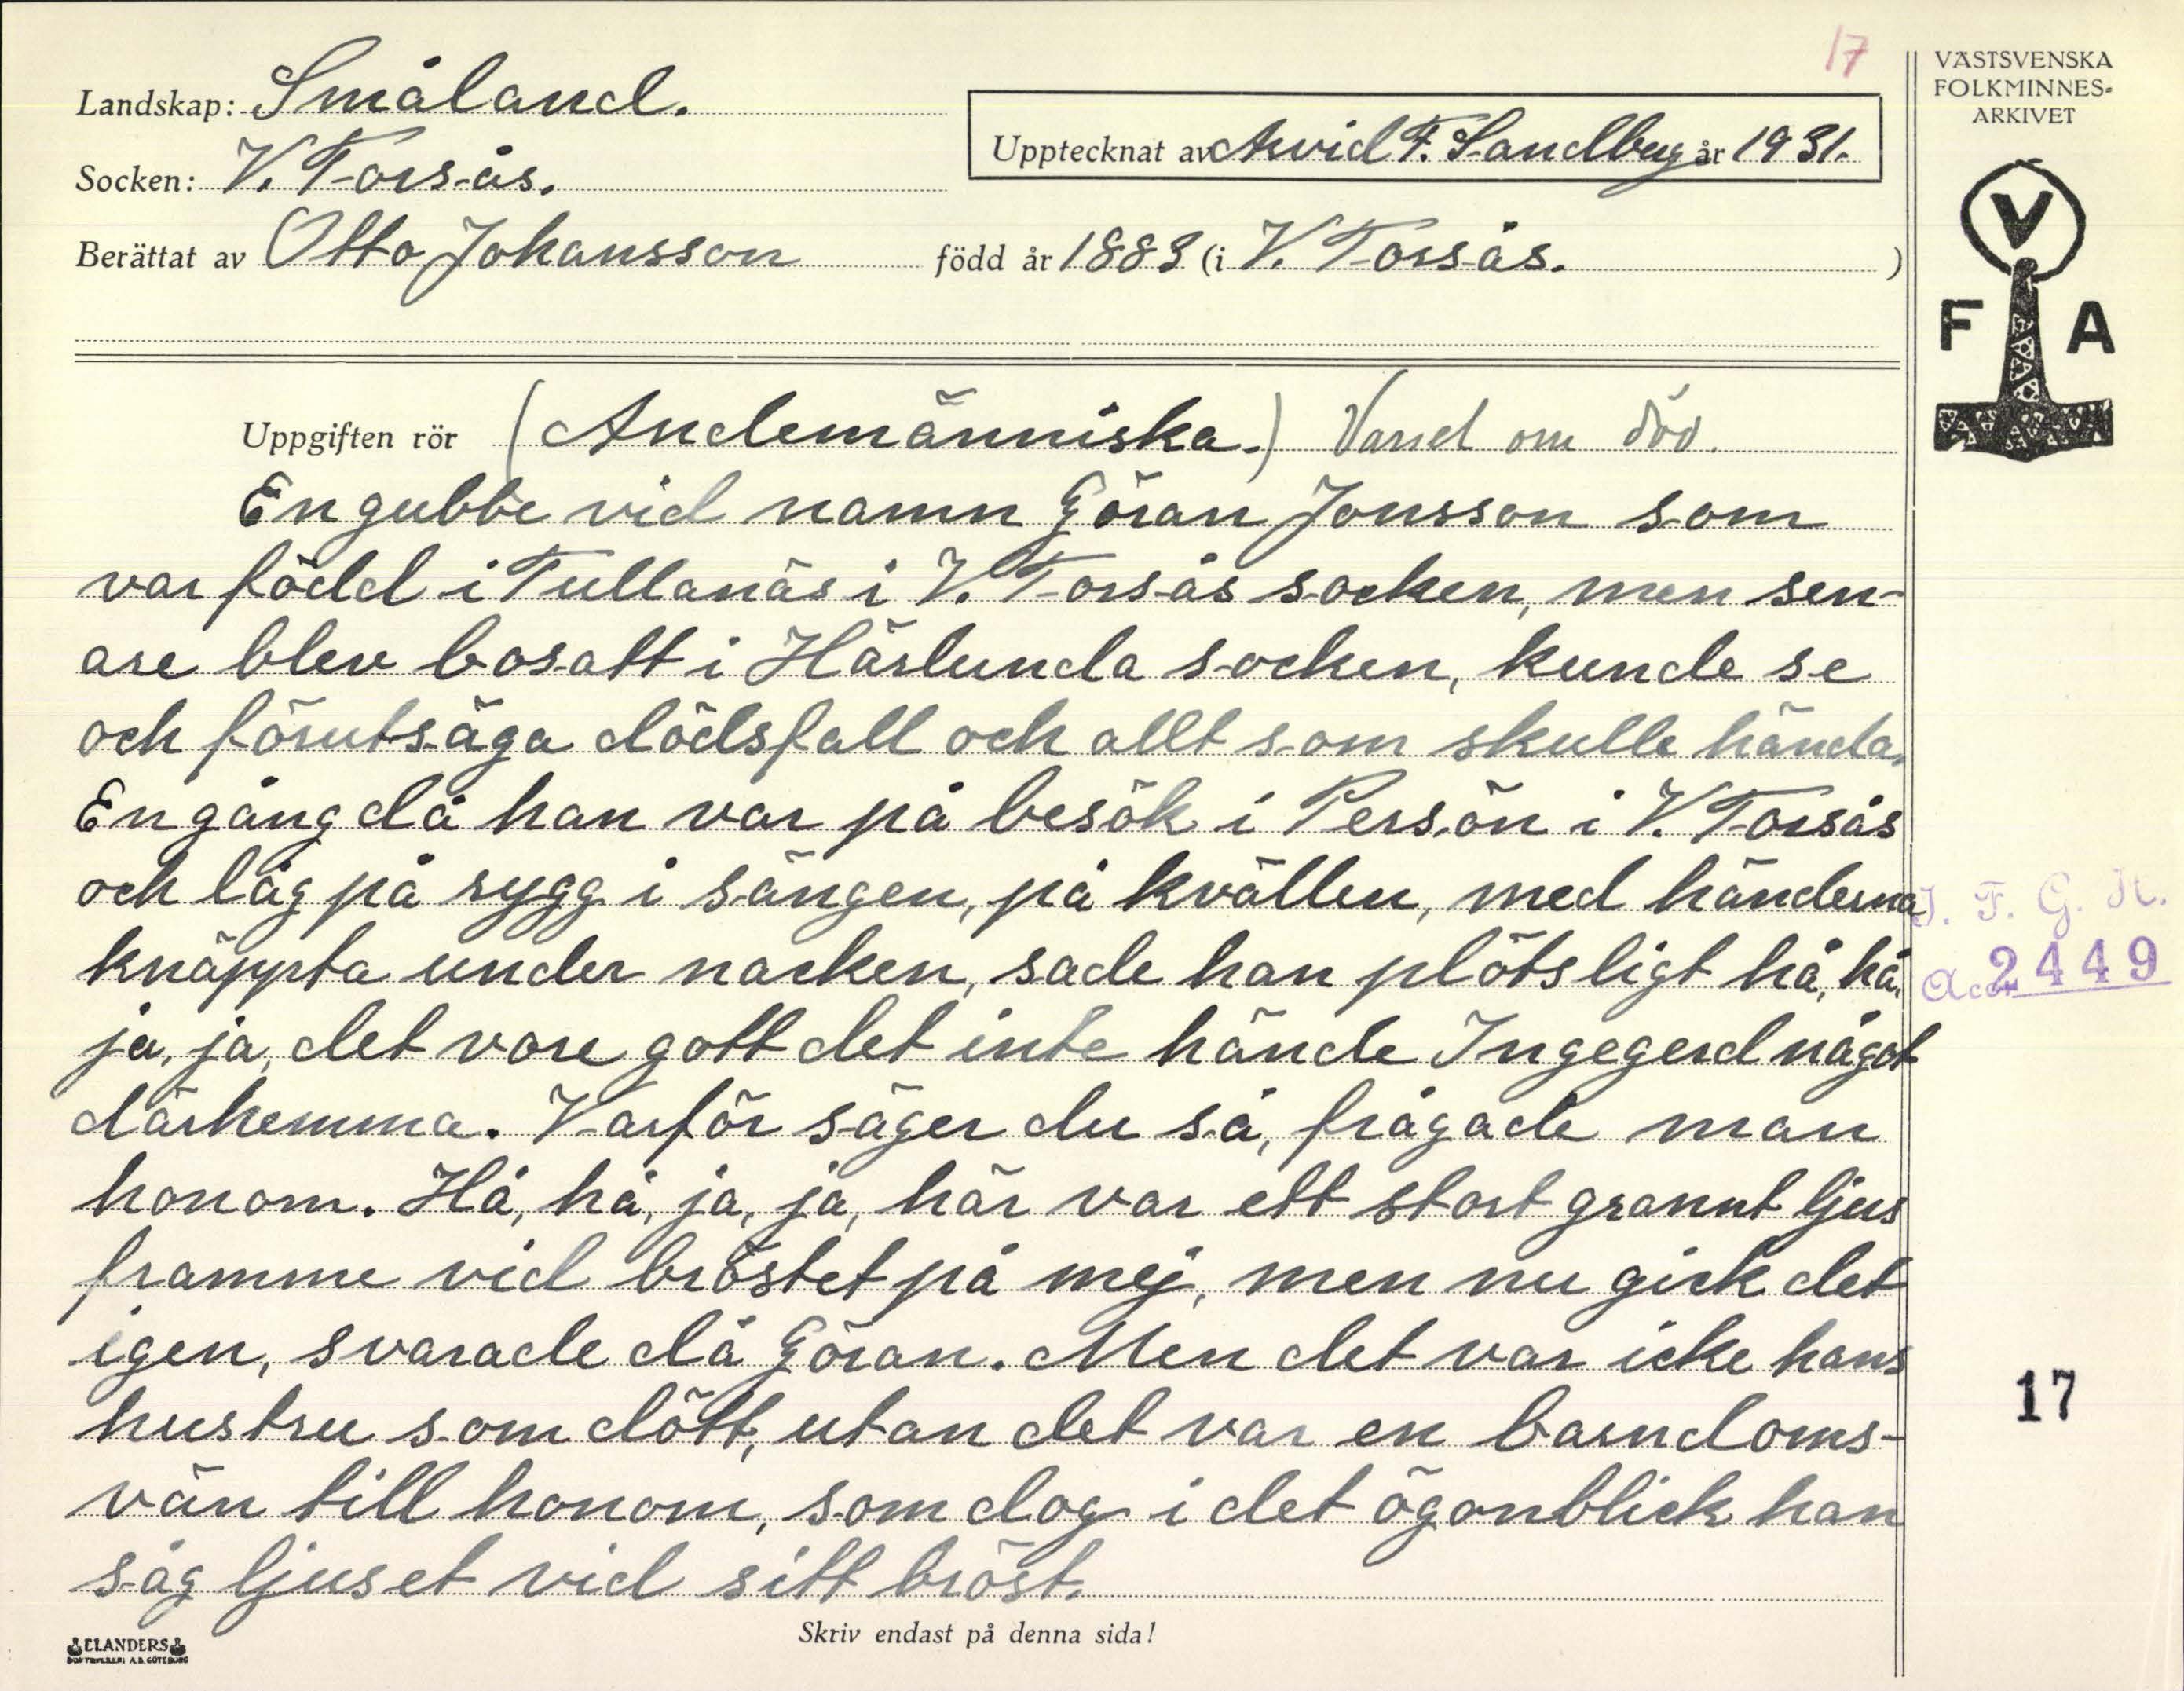 17
VÄSTSVENSKA
FOLKMINNES-
ARKIVET
Landskap: Småland.
Socken: V. Torsås.
Upptecknat av Arvid F. Sandberg år 1931.
Berättat av Otto Johansson född år 1883 (i V. Torsås. )
V
F A
Uppgiften rör (Andemänniska.) Varsel om död.
En gubbe vid namn Göran Jonsson som
var född i Tullanäs i V. Torsås socken, men sen-
are blev bosatt i Härlunda socken, kunde se
och förutsäga dödsfall och allt som skulle hända.
En gång då han var på besök i Persön i V. Torsås
och låg på rygg i sängen, på kvällen, med händerna
knäppta under nacken, sade han plötsligt hå, hå,
ja, ja, det vore gott det inte hände Ingegerd något
därhemma. Varför säger du så, frågade man
honom. Hå, hå, ja, ja, här var ett stort grannt ljus
framme vid bröstet på mej, men nu gick det
igen, svarade då Göran. Men det var icke hans
hustru som dött, utan det var en barndoms-
vän till honom, som dog i det ögonblick han
såg ljuset vid sitt bröst.
I. F. G. H.
Acc. 2449
17
Skriv endast på denna sida!
ELANDERS
BOKTRYCKERI A.B. GÖTEBORG